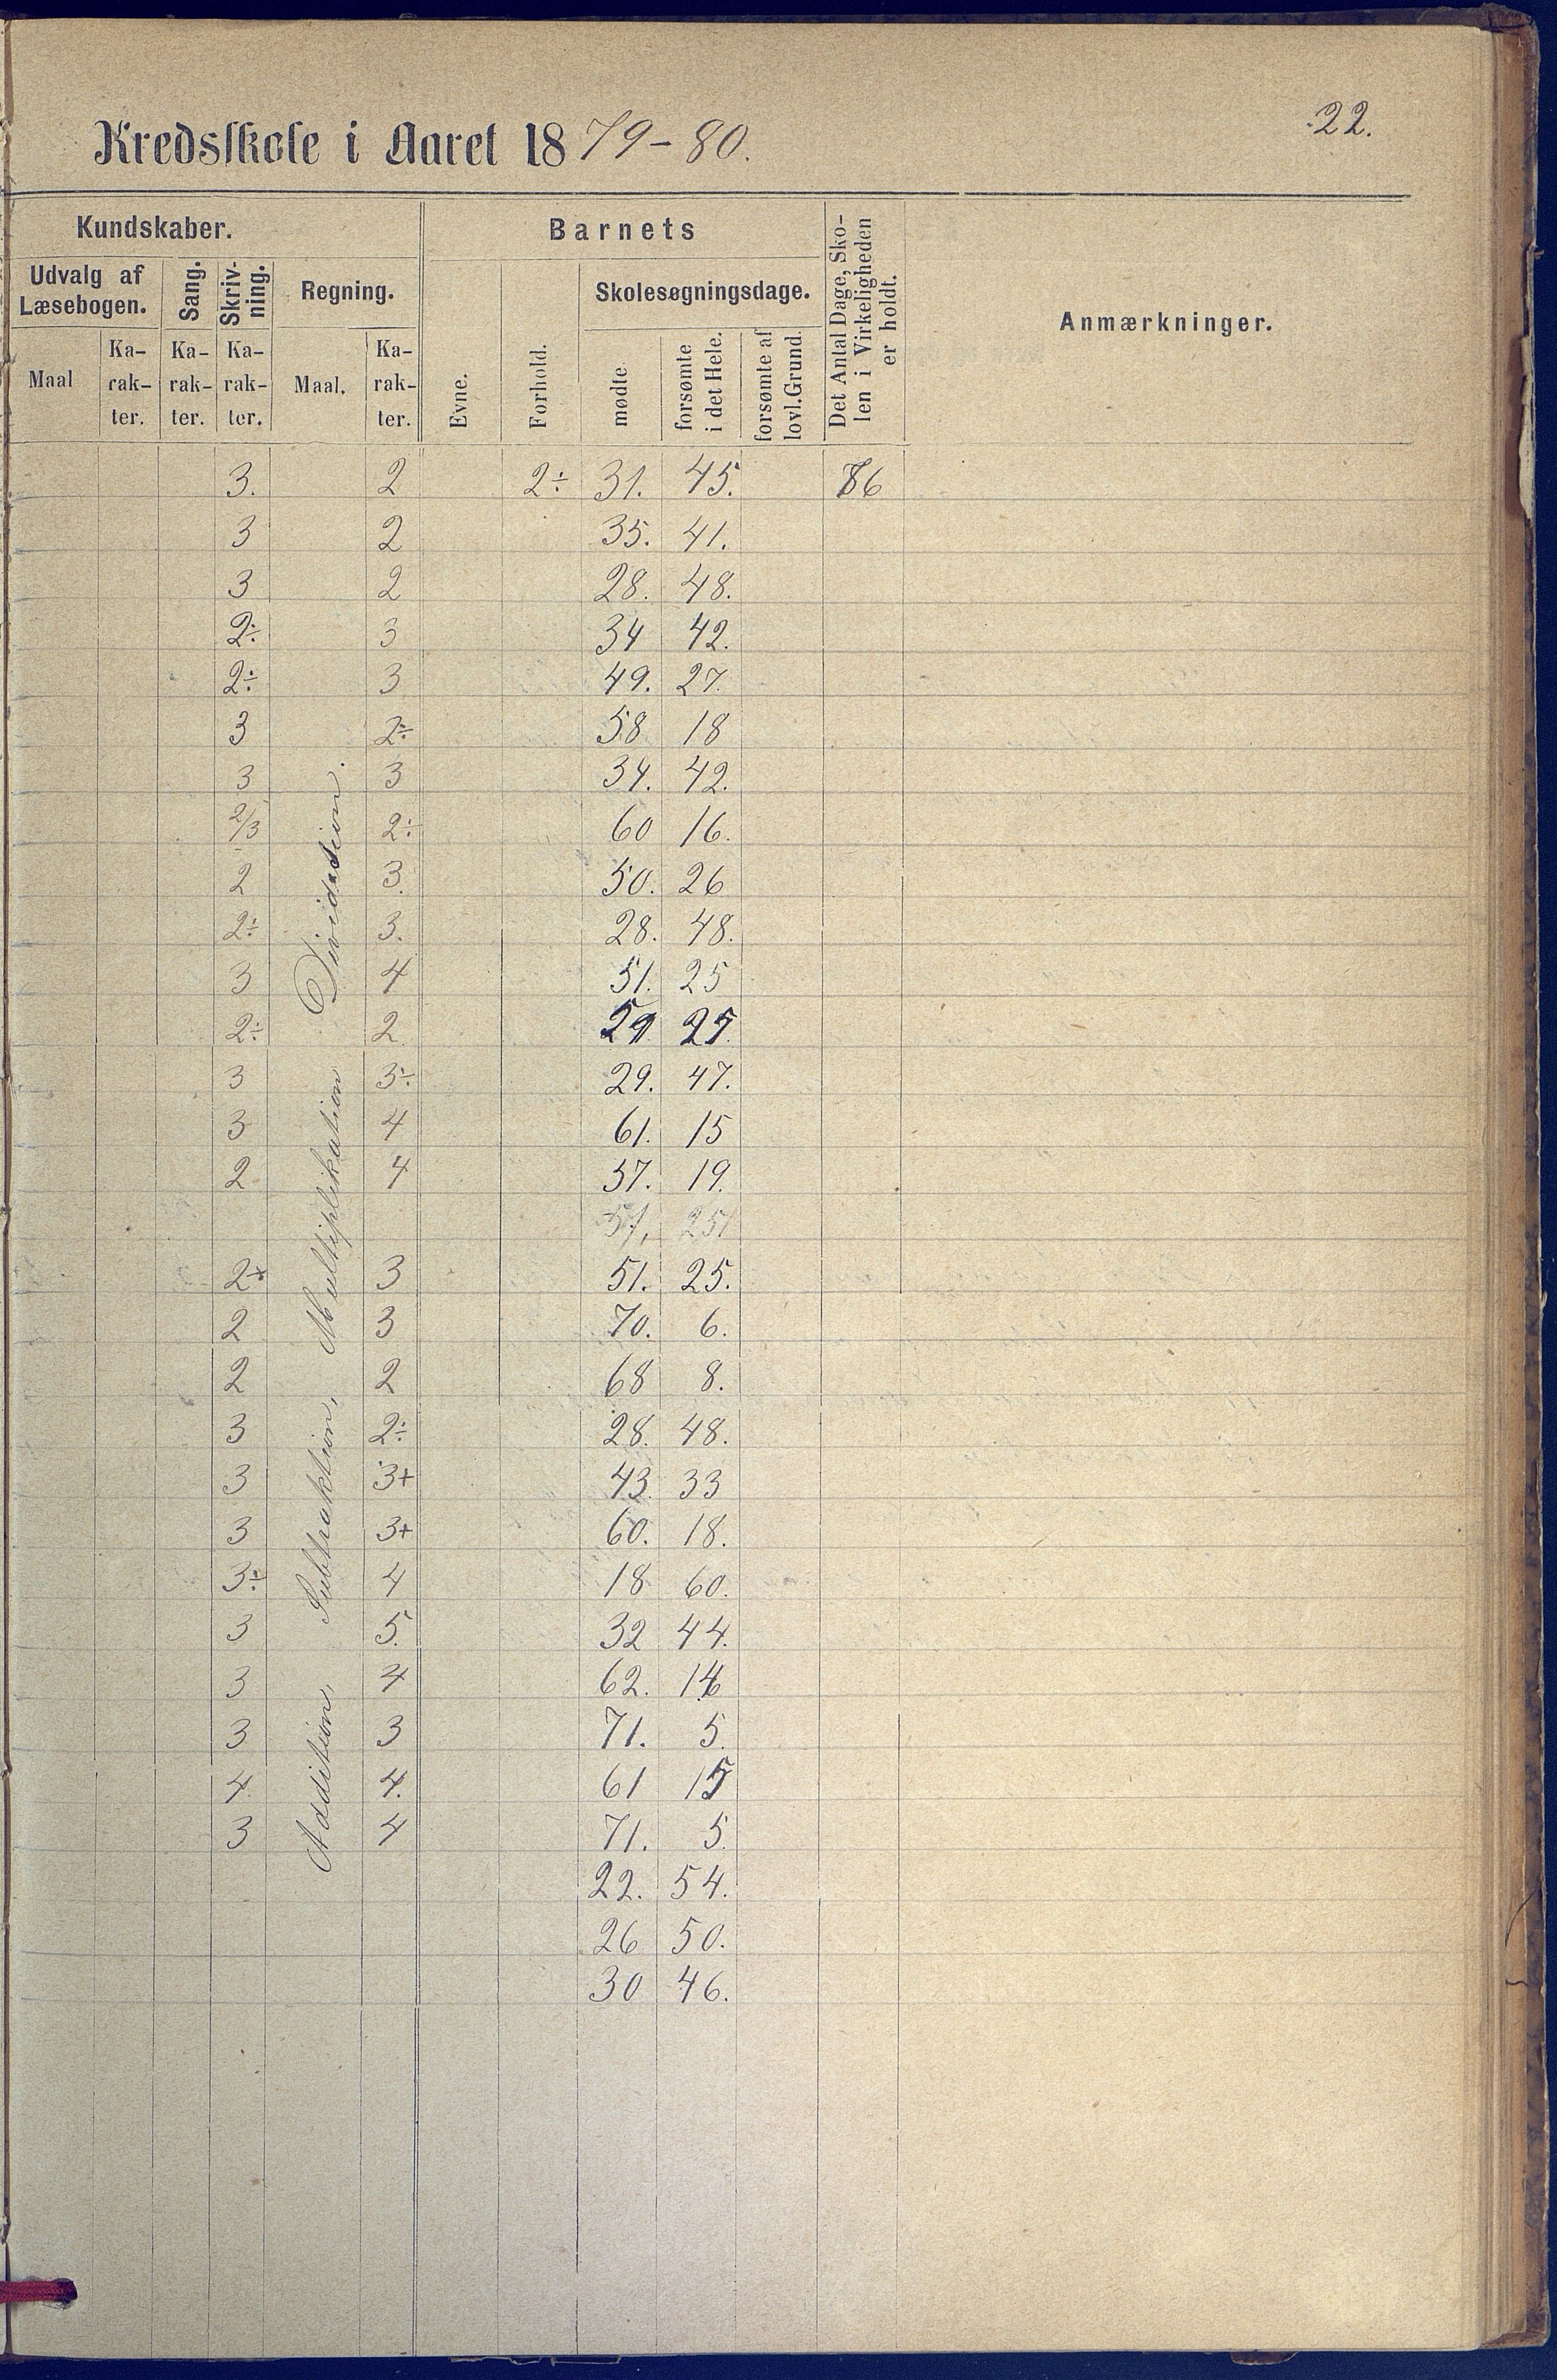 22.
Kredsskole i Aaret 1879-80.
Kundskaber. Barnets Det Antal Dage, Sko-
len i Virkeligheden
er holdt. Anmærkninger.
Udvalg af
Læsebogen. Sang. Skriv-
ning. Regning. Evne. Forhold. Skolesøgningsdage.
Maal Ka-
rak-
ter. Ka-
rak-
ter. Ka-
rak-
ter. Maal. Ka-
rak-
ter. mødte forsømte
i det Hele. forsømte af
lovl. Grund.
3. 2 2÷ 31. 45. 76
3 2 35. 41.
3 2 28. 48.
2÷ 3 34 42.
2÷ 3 49. 27.
3 2÷ 58 18
3 3 34. 42.
2/3 2÷ 60 16.
2 3. 50. 26
2÷ 3. 28. 48.
3 4 51. 25
2÷ 2
3 3÷ 29. 47.
3 4 61. 15
2 4 57. 19.
51, 25
2+ 3 51. 25.
2 3 70. 6.
2 2 68 8.
3 2÷ 28. 48.
3 3+ 43. 33
3 3+ 60. 18.
3÷ 4 18 60.
3 5. 32 44.
3 4 62. 14
3 3 71. 5.
4. 4. 61 15
3 4 71. 5.
22. 54.
26 50.
30 46.
Addition, Subtraktion, Multiplikation Division.